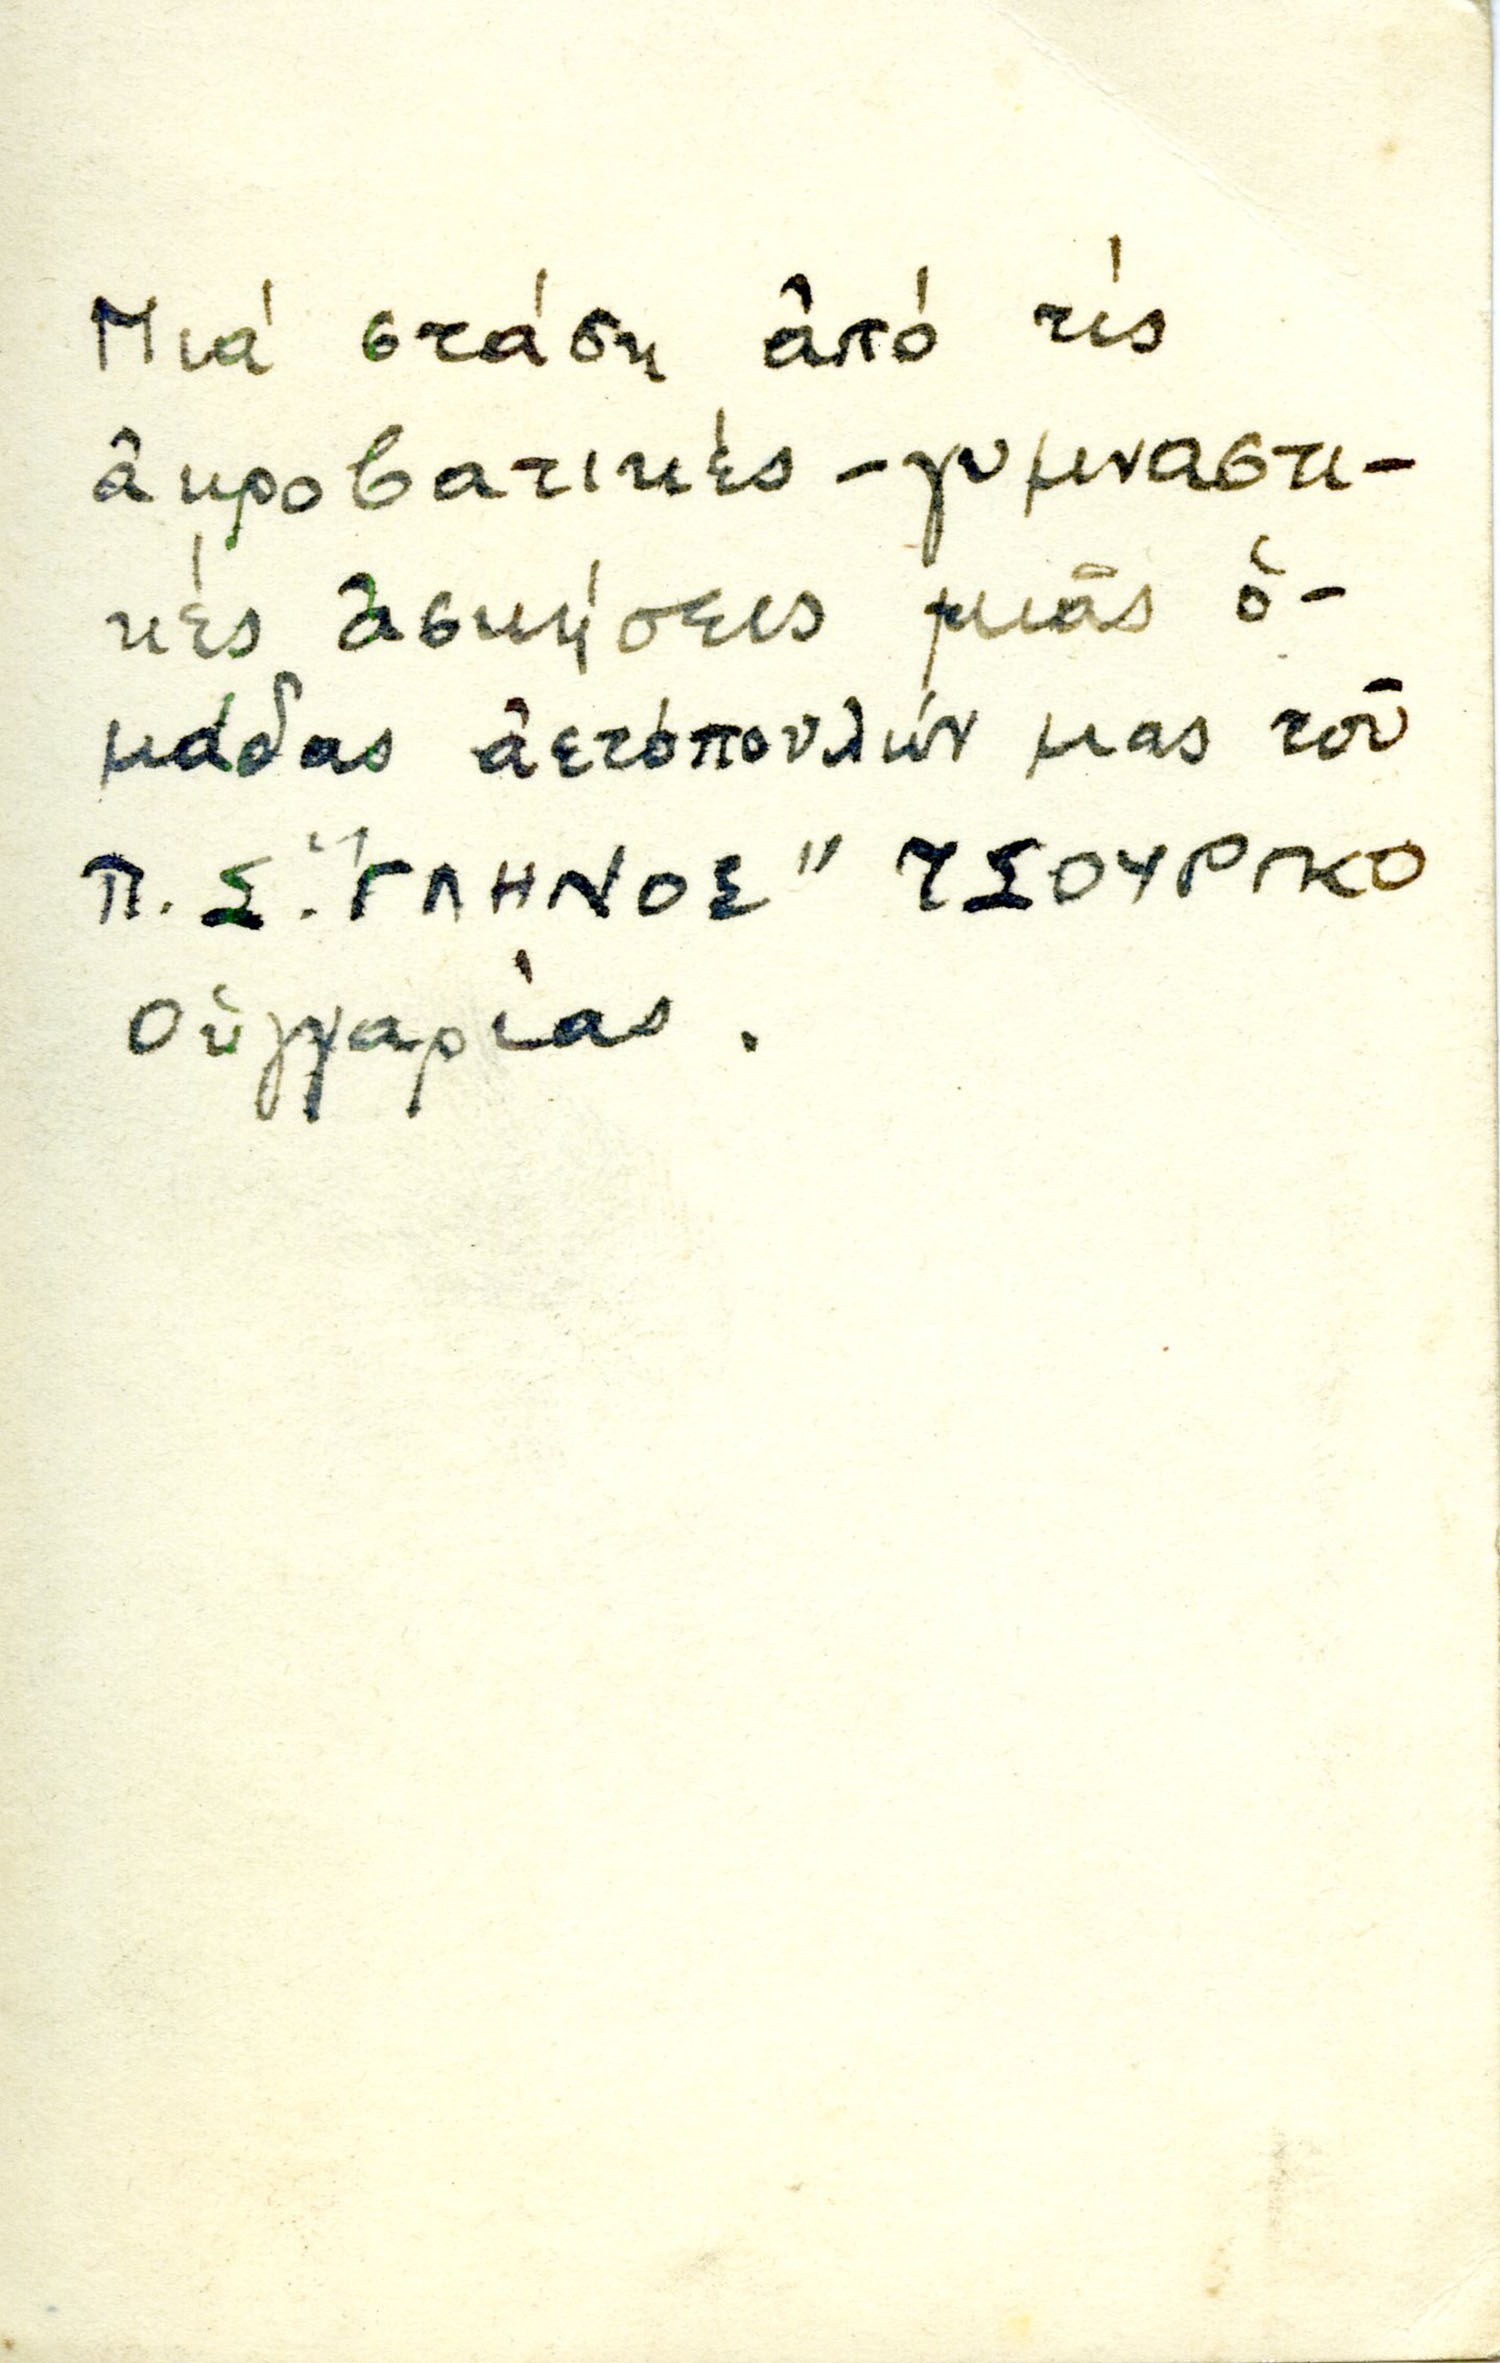 Μιά στάση ἀπό τίς
ἀκροβατικές - γυμναστι-
κές ἀσκήσεις μιᾶς ὁ-
μάδας ἀετόπουλών μας τοῦ
Π. Σ. "ΓΛΗΝΟΣ" ΤΣΟΥΡΓΚΟ
Οὑγγαρίας.